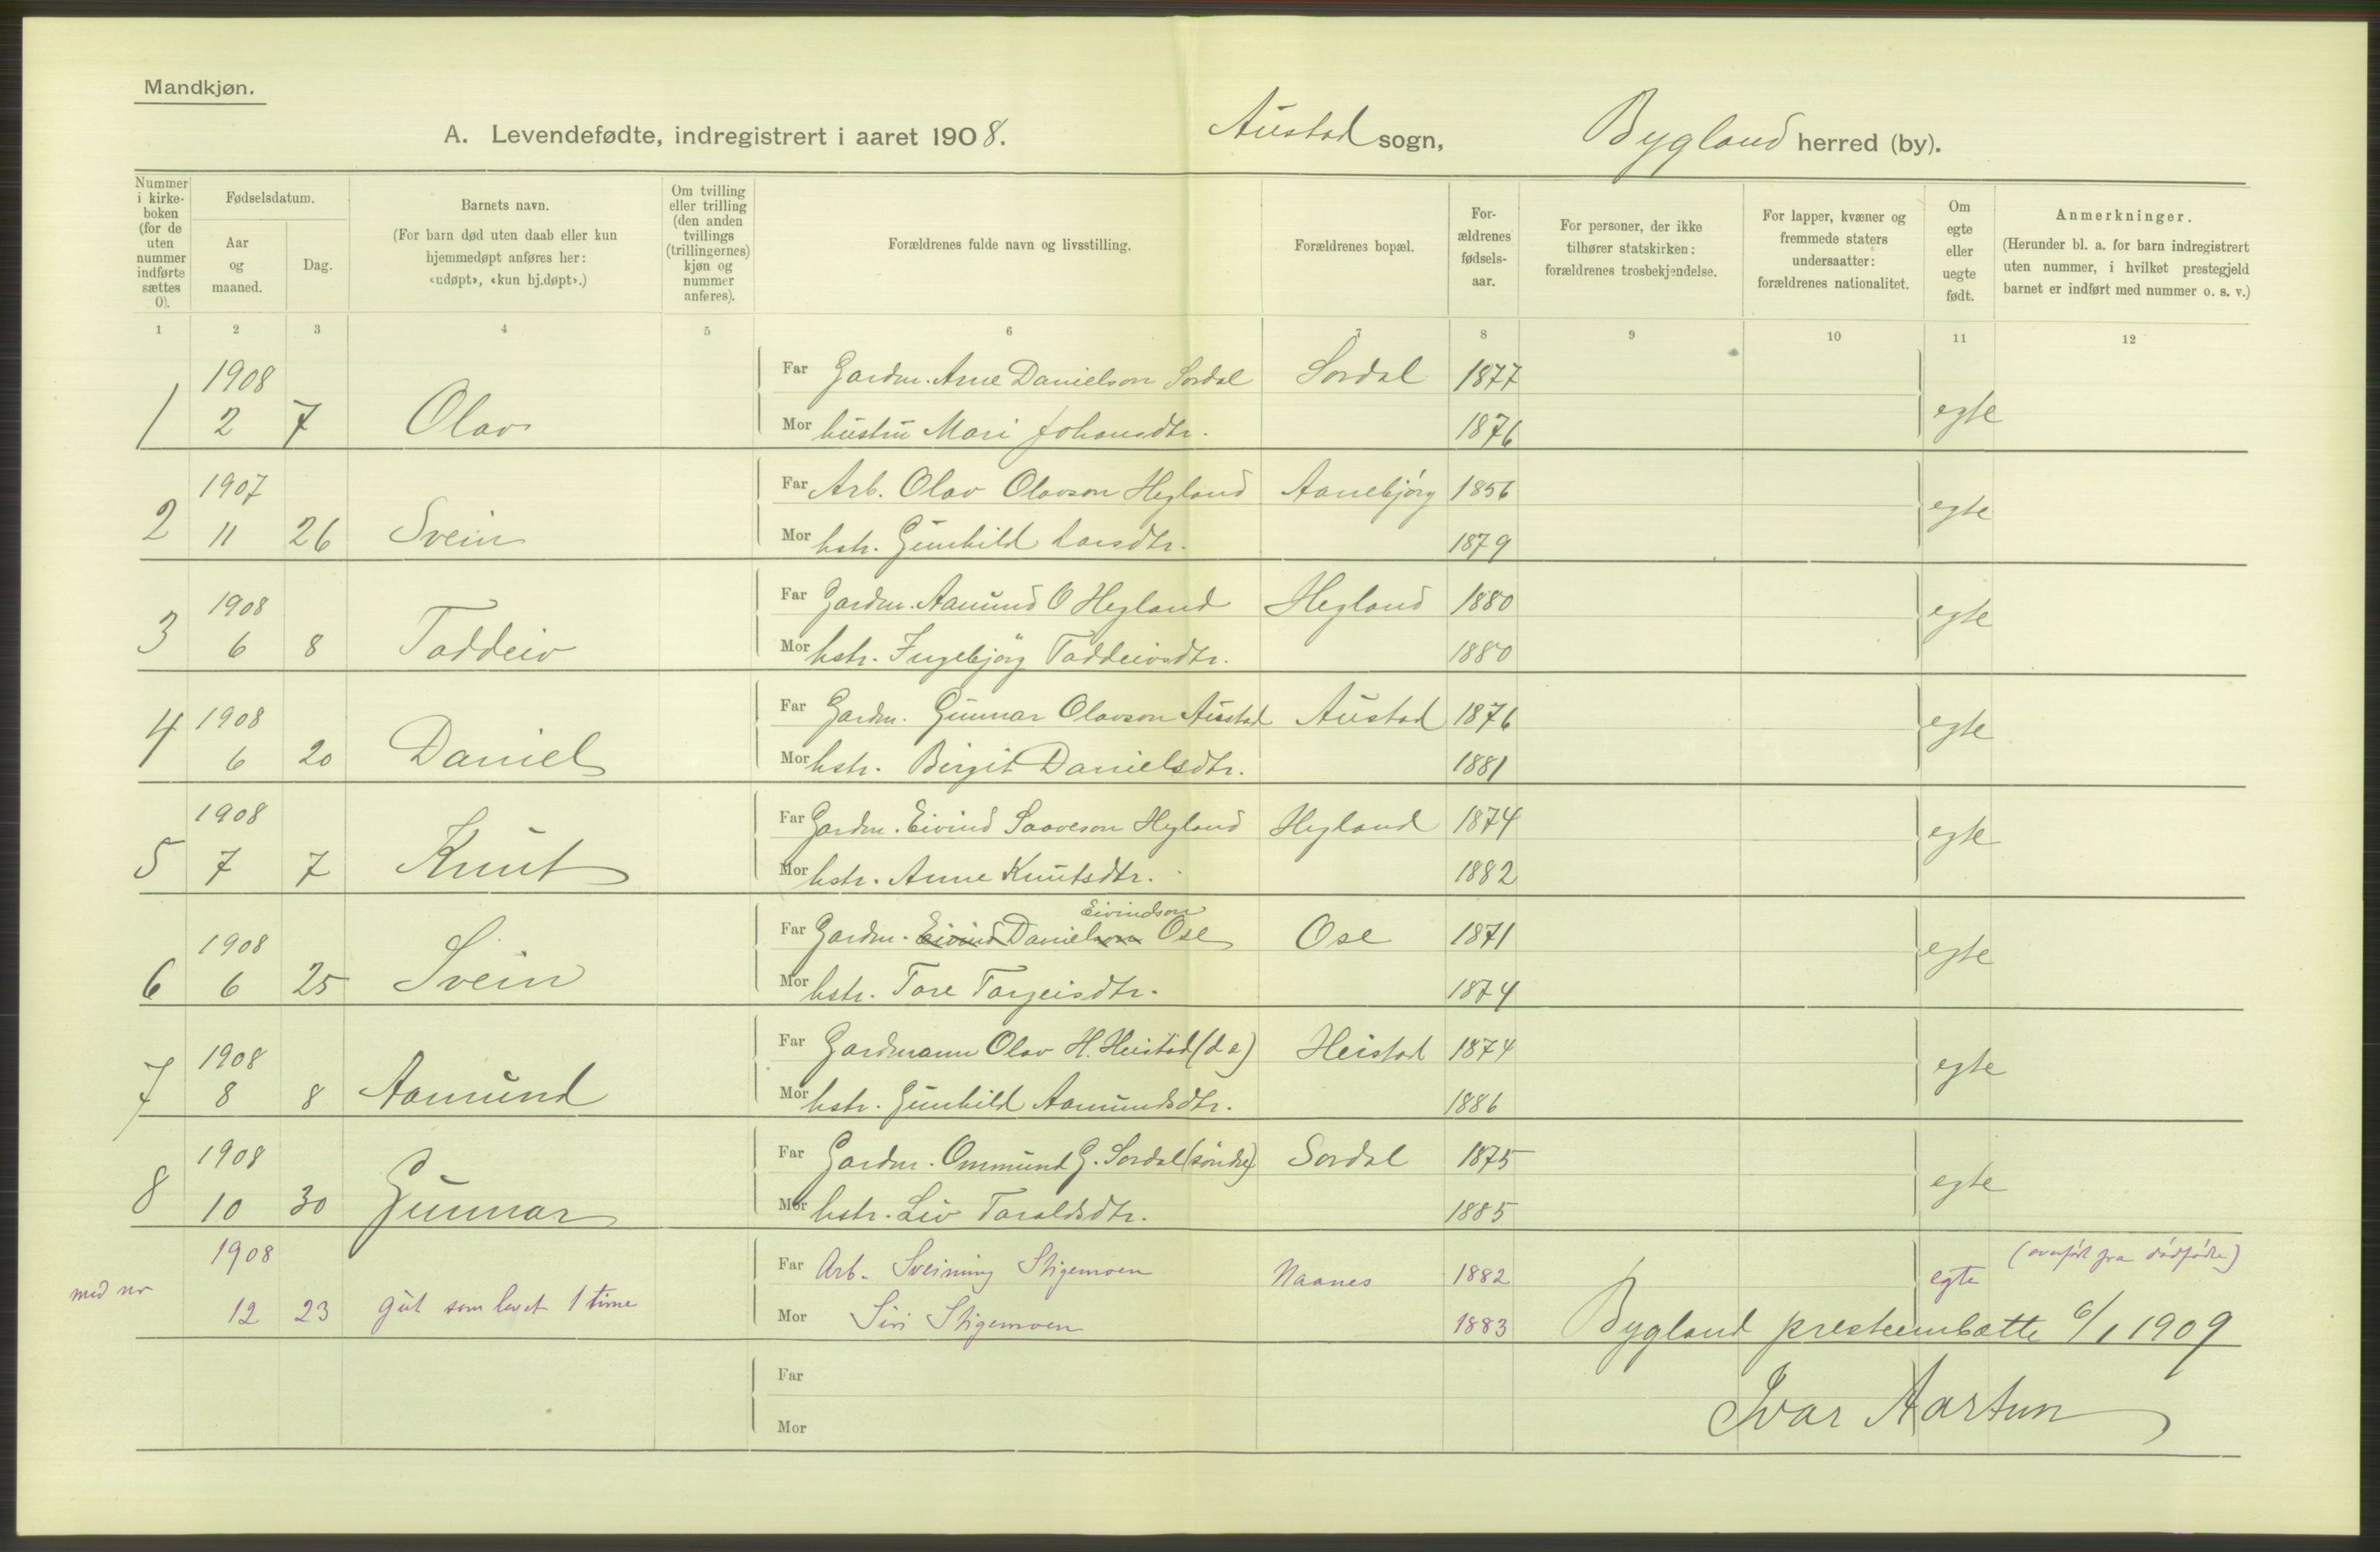 Mandkjøn.
A. Levendefødte, indregistrert i aaret 1908. Austad sogn, Bygland herred (by).
Nummer i kirkeboken (for de uten nummer indførte sættes 0).
Fødselsdatum.
Aar og maaned.
Dag.
Barnets navn.
(For barn død uten daab eller kun hjemmedøpt anføres her: «udøpt», «kun hj.døpt».)
Om tvilling eller trilling (den anden tvillings (trillingernes) kjøn og nummer anføres).
Forældrenes fulde navn og livsstilling.
Forældrenes bopæl.
For-ældrenes fødsels-aar.
For personer, der ikke tilhører statskirken: forældrenes trosbekjendelse.
For lapper, kvæner og fremmede staters undersaatter: forældrenes nationalitet.
Om egte eller uegte født.
Anmerkninger.
(Herunder bl. a. for barn indregistrert uten nummer, i hvilket prestegjeld barnet er indført med nummer o. s. v.)
1 2 3 4 5 6 7 8 9 10 11 12
1908 Far Gardm. Arne Danielson Sordal Sordal 1877
1 2 7 Olav Mor hustru Mari Johansdtr. 1876 egte
1907 Far Arb. Olav Olavson Hegland Aanebjørg 1856
2 11 26 Svein Mor hstr. Gunhild Larsdtr. 1879 egte
1908 Far Gardm. Aamund O Hegland Hegland 1880
3 6 8 Taddeiv Mor hstr. Ingebjørg Taddeivsdtr. 1880 egte
1908 Far Gardm. Gunnar Olavson Austad Austad 1876
4 6 20 Daniel Mor hstr. Birgit Danielsdtr. 1881 egte
1908 Far Gardm. Eivind Saaveson Hegland Hegland 1874
5 7 7 Knut Mor hstr. Anne Knutsdtr. 1882 egte
Eivindson
1908 Far Gardm. Eivind Danielson Ose Ose 1871
6 6 25 Svein Mor hstr. Tore Torgeisdtr. 1874 egte
1908 Far Gardmann Olav H. Heistad (d e) Heistad 1874
7 8 8 Aamund Mor hstr. Gunhild Aamundsdtr. 1886 egte
1908 Far Gardm. Ommund G. Sordal (søndre) Sordal 1875
8 10 30 Gunnar Mor hstr. Liv Taraldsdtr. 1885 egte
1908 Far Arb. Sveinung Stigemoen Naanes 1882 egte (overført fra dødfødte)
med nr 12 23 gut som levet 1 time Mor Siri Stigemoen 1883 Bygland presteembætte 6/1 1909
Far
Ivar Aartun
Mor